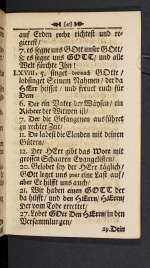 (41)
auf Erden recht richtest und re-
gierest/
7. es segne uns GOtt unser GOtt/
8. es segne uns GOTT/ und alle
Welt fürchte Ihn!
LXVIII. 5. singet GOtte/
lobsinget Seinem Nahmen/ der da
HErr heisset/ und freuet euch für
Dem
6. Der ein Vater der Waysen/ ein
Richter der Witwen ist/
7. Der die Gefangenen ausführt
zu rechter Zeit/
11. Du labest die Elenden mit deinen
Gütern/
12. Der HErr gibt das Wort mit
grossen Schaaren Evangelisten/
20. Gelobet sey der HErr täglich/
GOtt legt uns zwar eine Last auf/
aber Er hilfft uns auch/
21. Wir haben einen GOTT der
da hilfft/ und den HErrn/ HErrn/
Der vom Tode errettet/
27. Lobet GOtt Den HErrn in den
Versammlungen/
29. Dein